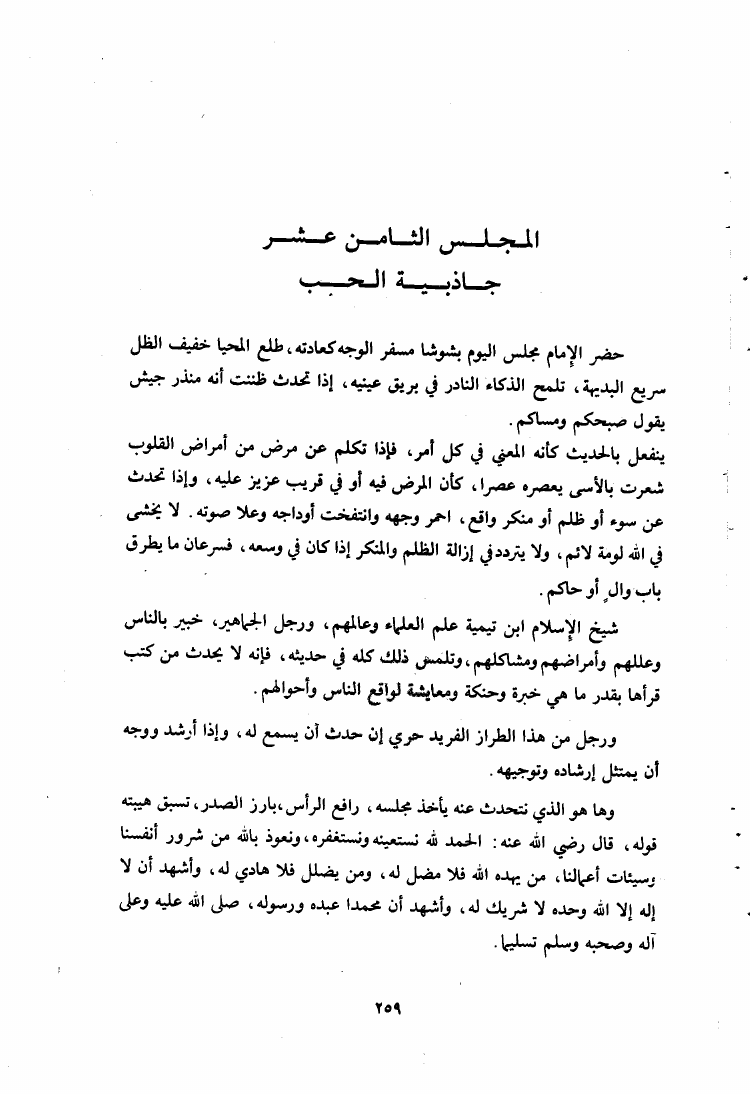 المجلس الثامن عشر
جاذبية الحب
حضر الإمام مجلس اليوم بشوشا مسفر الوجه كعادته، طلع المحيا خفيف الظل
سريع البديهة، تلمح الذكاء النادر في بريق عينيه، إذا تحدث ظننت أنه منذر جيش
يقول صبحكم ومساكم.
ينفعل بالحديث كأنه المعني في كل أمر، فإذا تكلم عن مرض من أمراض القلوب
شعرت بالأسى يعصره عصرا، كأن المرض فيه أو في قريب عزيز عليه، وإذا تحدث
عن سوء أو ظلم أو منكر واقع، احمر وجهه وانتفخت أوداجه وعلا صوته. لا يخشى
في الله لومة لائم، ولا يتردد في إزالة الظلم والمنكر إذا كان في وسعه، فسرعان ما يطرق
باب والٍ أو حاكم.
شيخ الإسلام ابن تيمية علم العلماء وعالمهم، ورجل الجماهير، خبير بالناس
وعللهم وأمراضهم ومشاكلهم، وتلمس ذلك كله في حديثه، فإنه لا يحدث من كتب
قرأها بقدر ما هي خبرة وحنكة ومعايشة لواقع الناس وأحوالهم.
ورجل من هذا الطراز الفريد حري إن حدث أن يسمع له، وإذا أرشد ووجه
أن يمتثل إرشاده وتوجيهه.
وها هو الذي نتحدث عنه يأخذ مجلسه، رافع الرأس، بارز الصدر، تسبق هيبته
قوله، قال رضي الله عنه: الحمد لله نستعينه ونستغفره، ونعوذ بالله من شرور أنفسنا
وسيئات أعمالنا، من يهده الله فلا مضل له، ومن يضلل فلا هادي له، وأشهد أن لا
إله إلا الله وحده لا شريك له، وأشهد أن محمدا عبده ورسوله، صلى الله عليه وعلى
آله وصحبه وسلم تسليما.
٢٥٩